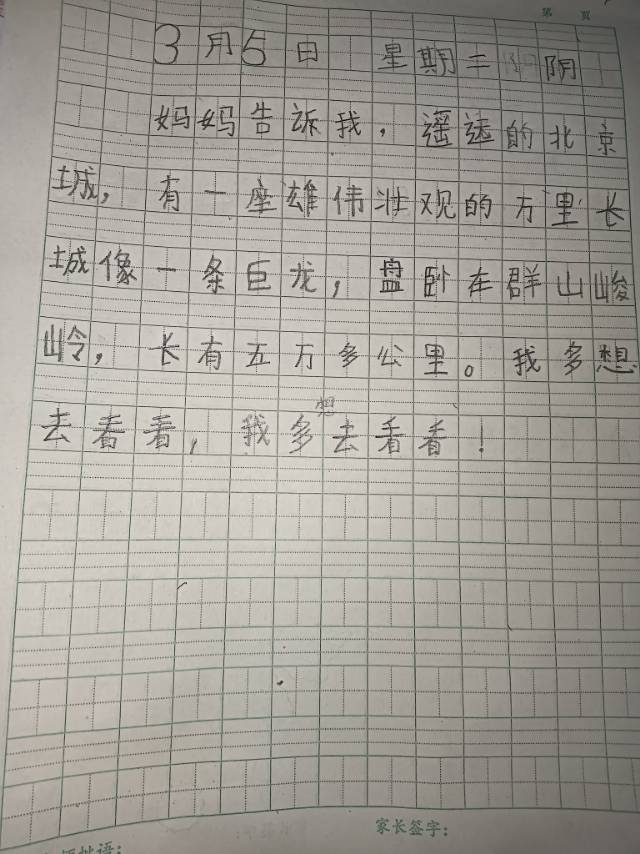 第 页
3月5日 星期二 阴
妈妈告诉我，遥远的北京
城，有一座雄伟壮观的万里长
城像一条巨龙，盘卧在群山峻
岭，长有五万多公里。我多想
去看看，我多想去看看！
家长签字：
评批语：